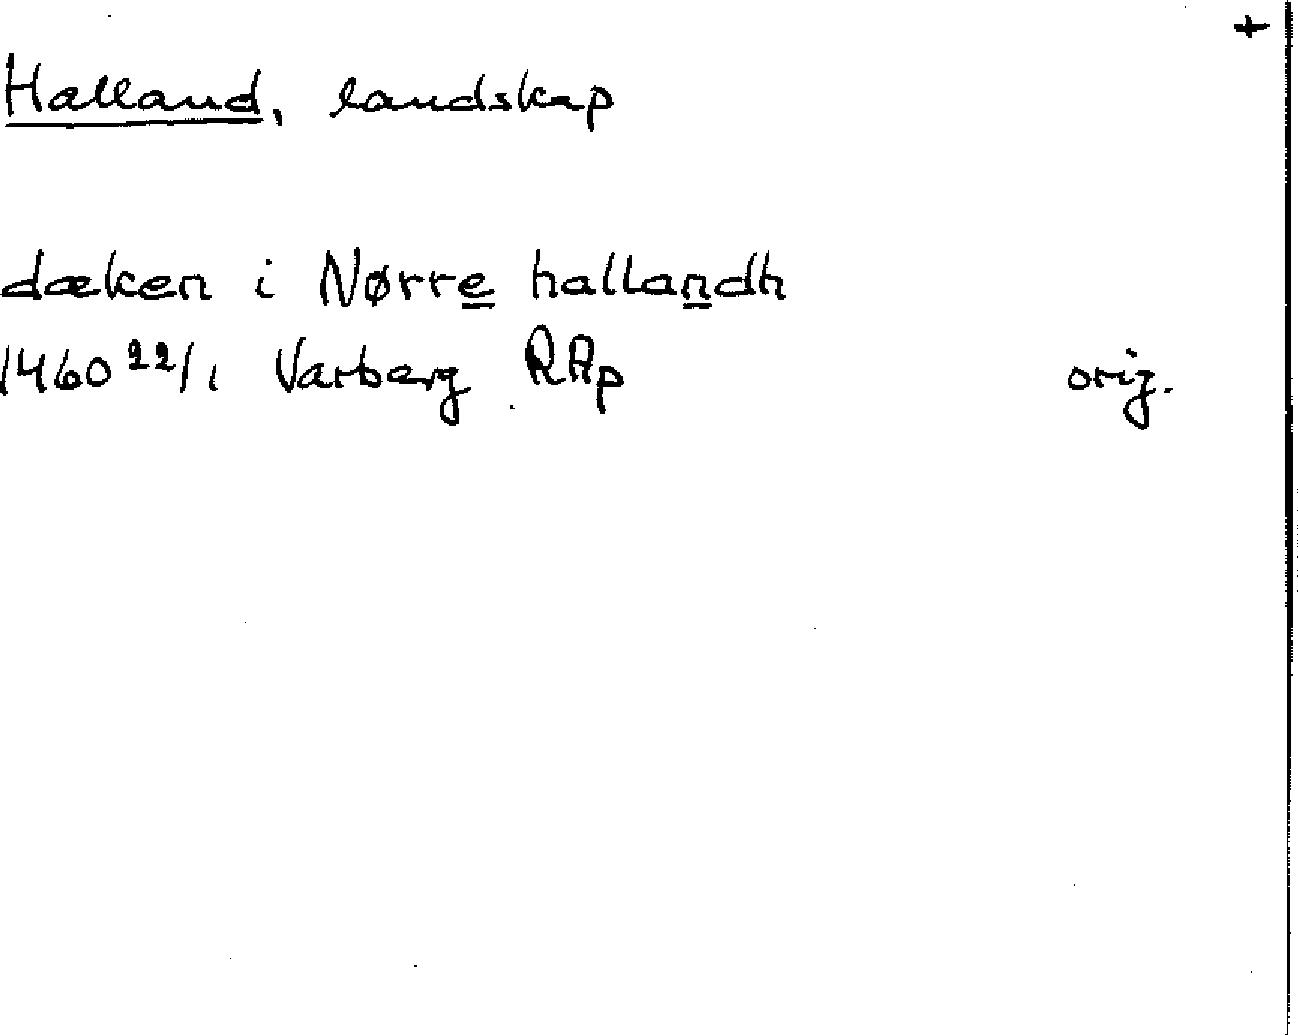 +
Halland, landskap
dæken i Nørre hallandh
1460 22/1 Varberg RAp orig.